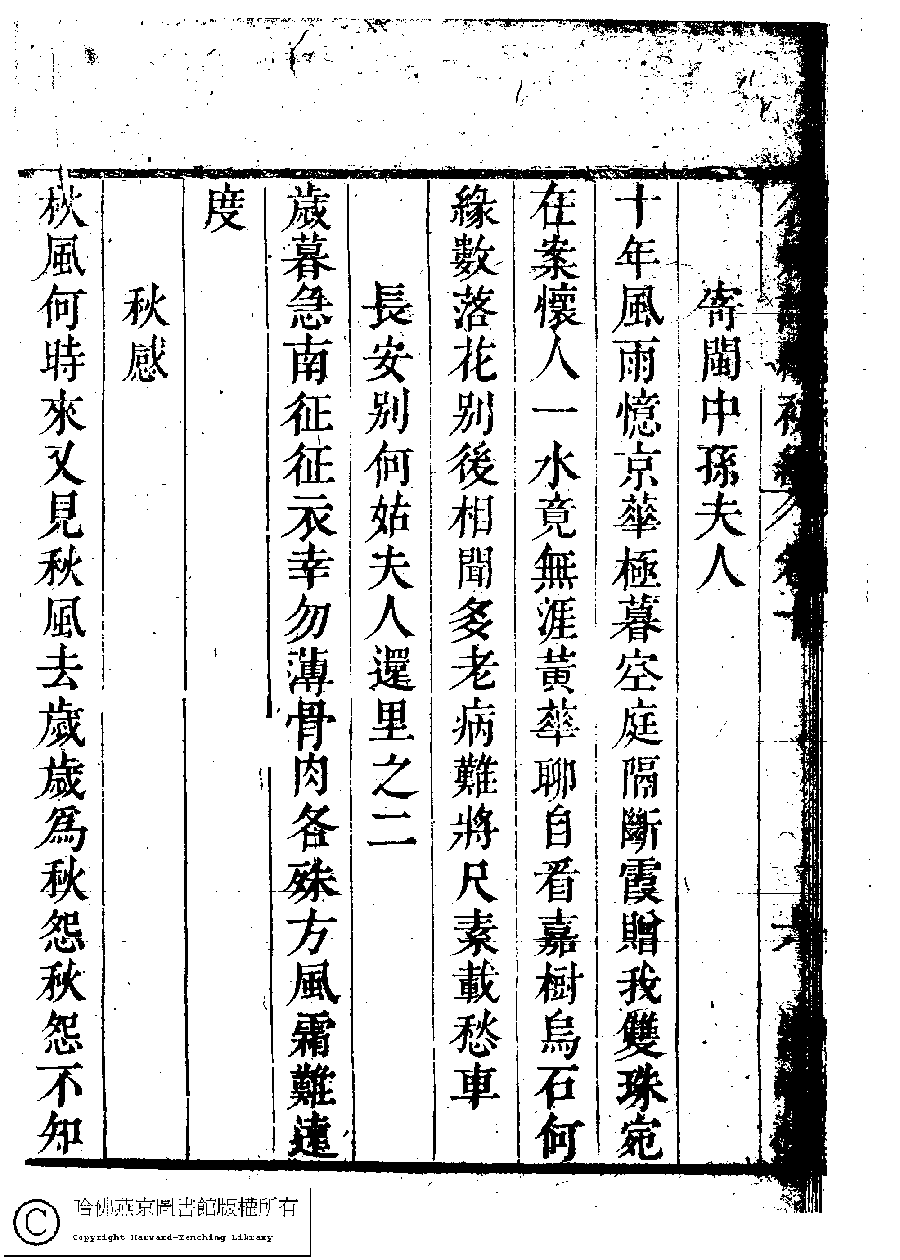 寄閩中孫夫人
十年風雨憶京華極暮空庭隔斷霞贈我雙珠宛
在案懷人一水竟無涯黃華聊自看嘉樹烏石何
緣數落花别後相聞多老病難將尺素載愁車
長安别何姑夫人還里之二
歲暮急南征征衣幸勿薄骨肉各殊方風霜難遠
度
秋感
秋風何時來又見秋風去歲歲為秋怨秋怨不知
哈佛燕京圖書館版權所有
Copyright Harvard-Yenching Library